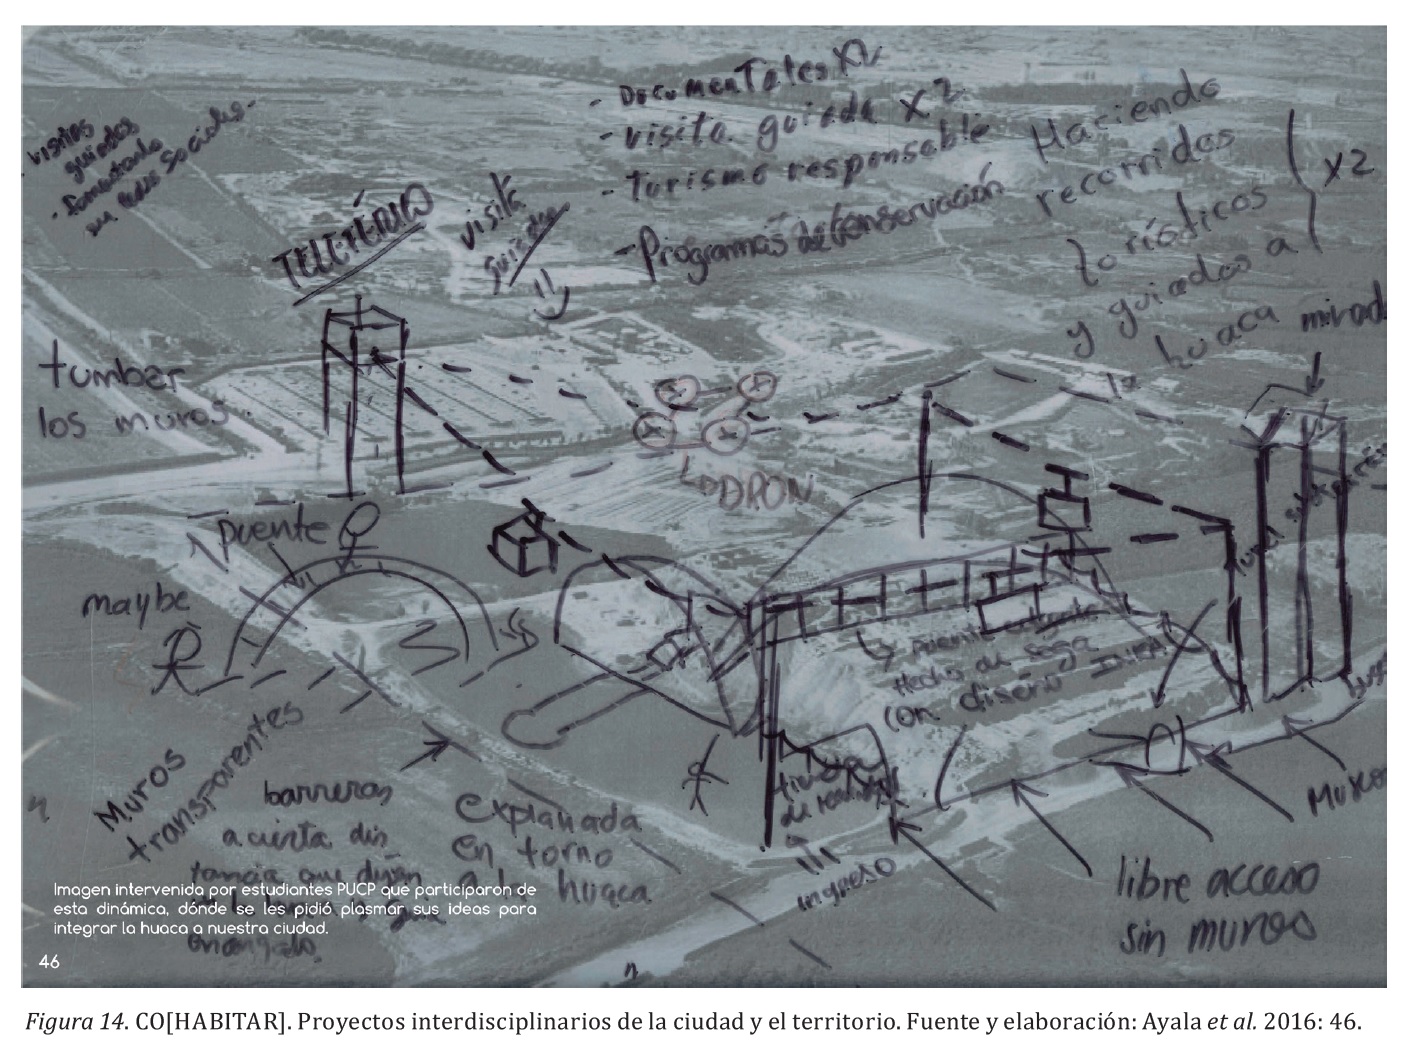 - Documentales x2
- visita guiada x2
- Turismo responsable
- Programas de conservación
visitas
guiadas
- fomentado
en redes sociales -
TELEFÉRICO
visita
guiada
Haciendo
recorridos
turísticos
y guiados a
la huaca
x2
mirad
tumbar
los muros
DRON
puente
maybe
Muros
transparentes
barreras
a cierta dis
tancia que digan
Explanada
en torno
a la huaca
puente colgante
Hecho de soga
con diseño INKA
tienda
ingreso
Museo
libre acceso
sin muros
Imagen intervenida por estudiantes PUCP que participaron de
esta dinámica, dónde se les pidió plasmar sus ideas para
integrar la huaca a nuestra ciudad.
46
Figura 14. CO[HABITAR]. Proyectos interdisciplinarios de la ciudad y el territorio. Fuente y elaboración: Ayala et al. 2016: 46.